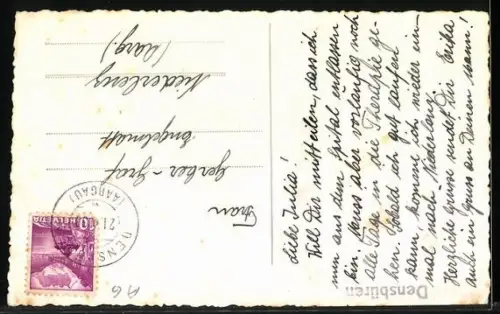 Liebe Julia!
Will Dir mitteilen, dass ich
nun aus dem Spital entlassen
bin. Muss aber vorläufig noch
alle Tage in die Therapie ge-
hen. Sobald ich gut laufen
kann, komme ich wieder ein-
mal nach Niederlenz.
Herzliche Grüsse sendet Dir Erika
auch ein Gruss an Deinen Mann!
Frau
Gerber-Graf
Engelmatt
Niederlenz
(Aarg.)
DENSBÜREN
(AARGAU)
HELVETIA
10
Densbüren